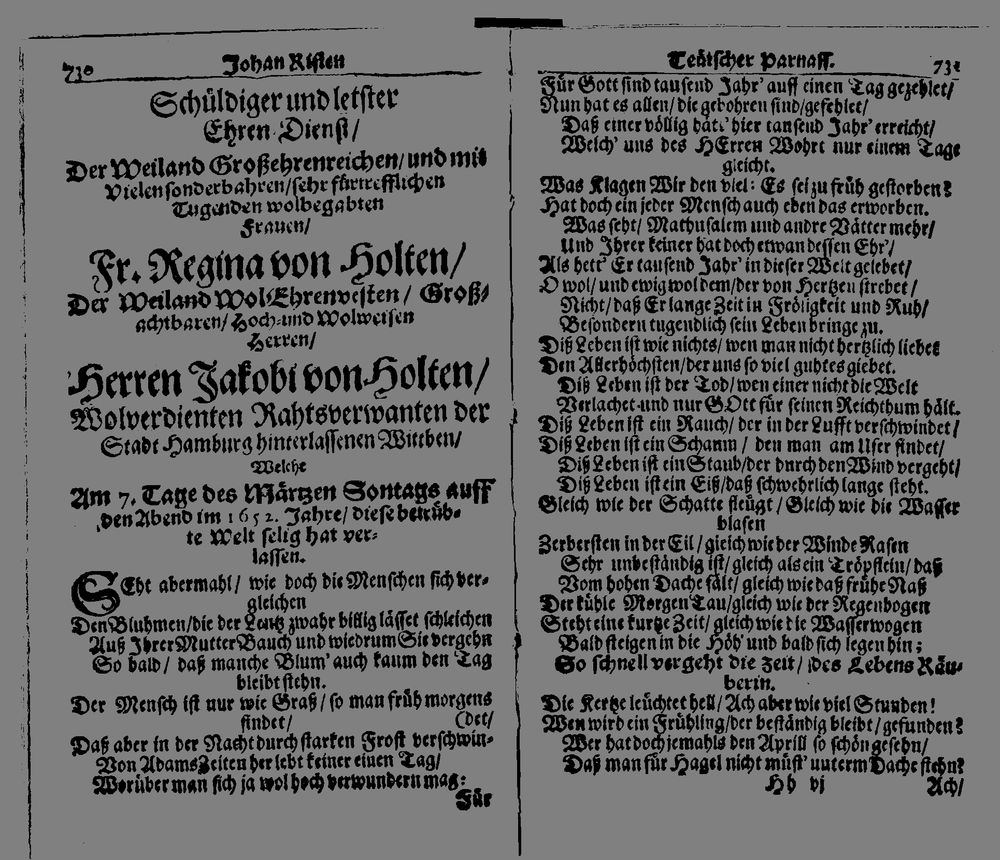 730 Johan Risten
Schüldiger und letster
Ehren-Dienst/
Der Weiland Großehrenreichen/und mit
vielen sonderbahren/sehr fürtrefflichen
Tugenden wolbegabten
Frauen/
Fr. Regina von Holten/
Der Weiland Wol-Ehrenvesten/ Groß-
achtbaren/ Hoch-und Wolweisen
Herren/
Herren Jakobi von Holten/
Wolverdienten Rahtsverwanten der
Stadt Hamburg hinterlassenen Wittben/
Welche
Am 7. Tage des Märtzen Sontags auff
den Abend im 1652. Jahre/ diese betrüb-
te Welt selig hat ver-
lassen.
SEht abermahl/ wie doch die Menschen sich ver-
gleichen
Den Bluhmen/die der Lentz zwahr billig lässet schleichen
Auß Ihrer Mutter Bauch und wiedrum Sie vergehn
So bald/ daß manche Blum' auch kaum den Tag
bleibt stehn.
Der Mensch ist nur wie Graß/ so man früh morgens
findet/ (det/
Daß aber in der Nacht durch starken Frost verschwin-
Von Adams Zeiten her lebt keiner einen Tag/
Worüber man sich ja wol hoch verwundern mag:
Für
Teütscher Parnass. 731
Für Gott sind tausend Jahr' auff einen Tag gezehlet/
Nun hat es allen/die gebohren sind/gefehlet/
Daß einer völlig hätt' hier tausend Jahr' erreicht/
Welch' uns des HErren Wohrt nur einem Tage
gleicht.
Was Klagen Wir den viel: Es sei zu früh gestorben?
Hat doch ein jeder Mensch auch eben das erworben.
Was seht/ Mathusalem und andre Vätter mehr/
Und Ihrer keiner hat doch etwan dessen Ehr'/
Als hett' Er tausend Jahr' in dieser Welt gelebet/
O wol/und ewig wol dem/der von Hertzen strebet/
Nicht/daß Er lange Zeit in Fröligkeit und Ruh/
Besondern tugendlich sein Leben bringe zu.
Diß Leben ist wie nichts/ wen man nicht hertzlich liebet
Den Allerhöchsten/der uns so viel guhtes giebet.
Diß Leben ist der Tod/wen einer nicht die Welt
Verlachet und nur GOtt für seinen Reichthum hält.
Diß Leben ist ein Rauch/ der in der Lufft verschwindet/
Diß Leben ist ein Schaum/ den man am Ufer findet/
Diß Leben ist ein Staub/der durch den Wind vergeht/
Diß Leben ist ein Eiß/daß schwehrlich lange steht.
Gleich wie der Schatte fleügt/Gleich wie die Wasser
blasen
Zerbersten in der Eil/gleich wie der Winde Rasen
Sehr unbeständig ist/gleich als ein Tröpflein/daß
Vom hohen Dache fält/ gleich wie daß frühe Naß
Der kühle Morgen Tau/gleich wie der Regenbogen
Steht eine kurtze Zeit/ gleich wie die Wasserwogen
Bald steigen in die Höh' und bald sich legen hin;
So schnell vergeht die Zeit/ des Lebens Räu-
berin.
Die Kertze leüchtet hell/ Ach aber wie viel Stunden!
Wen wird ein Frühling/der beständig bleibt/gefunden?
Wer hat doch jemahls den Aprill so schön gesehn/
Daß man für Hagel nicht müst' unterm Dache stehn?
Hh vj Ach/